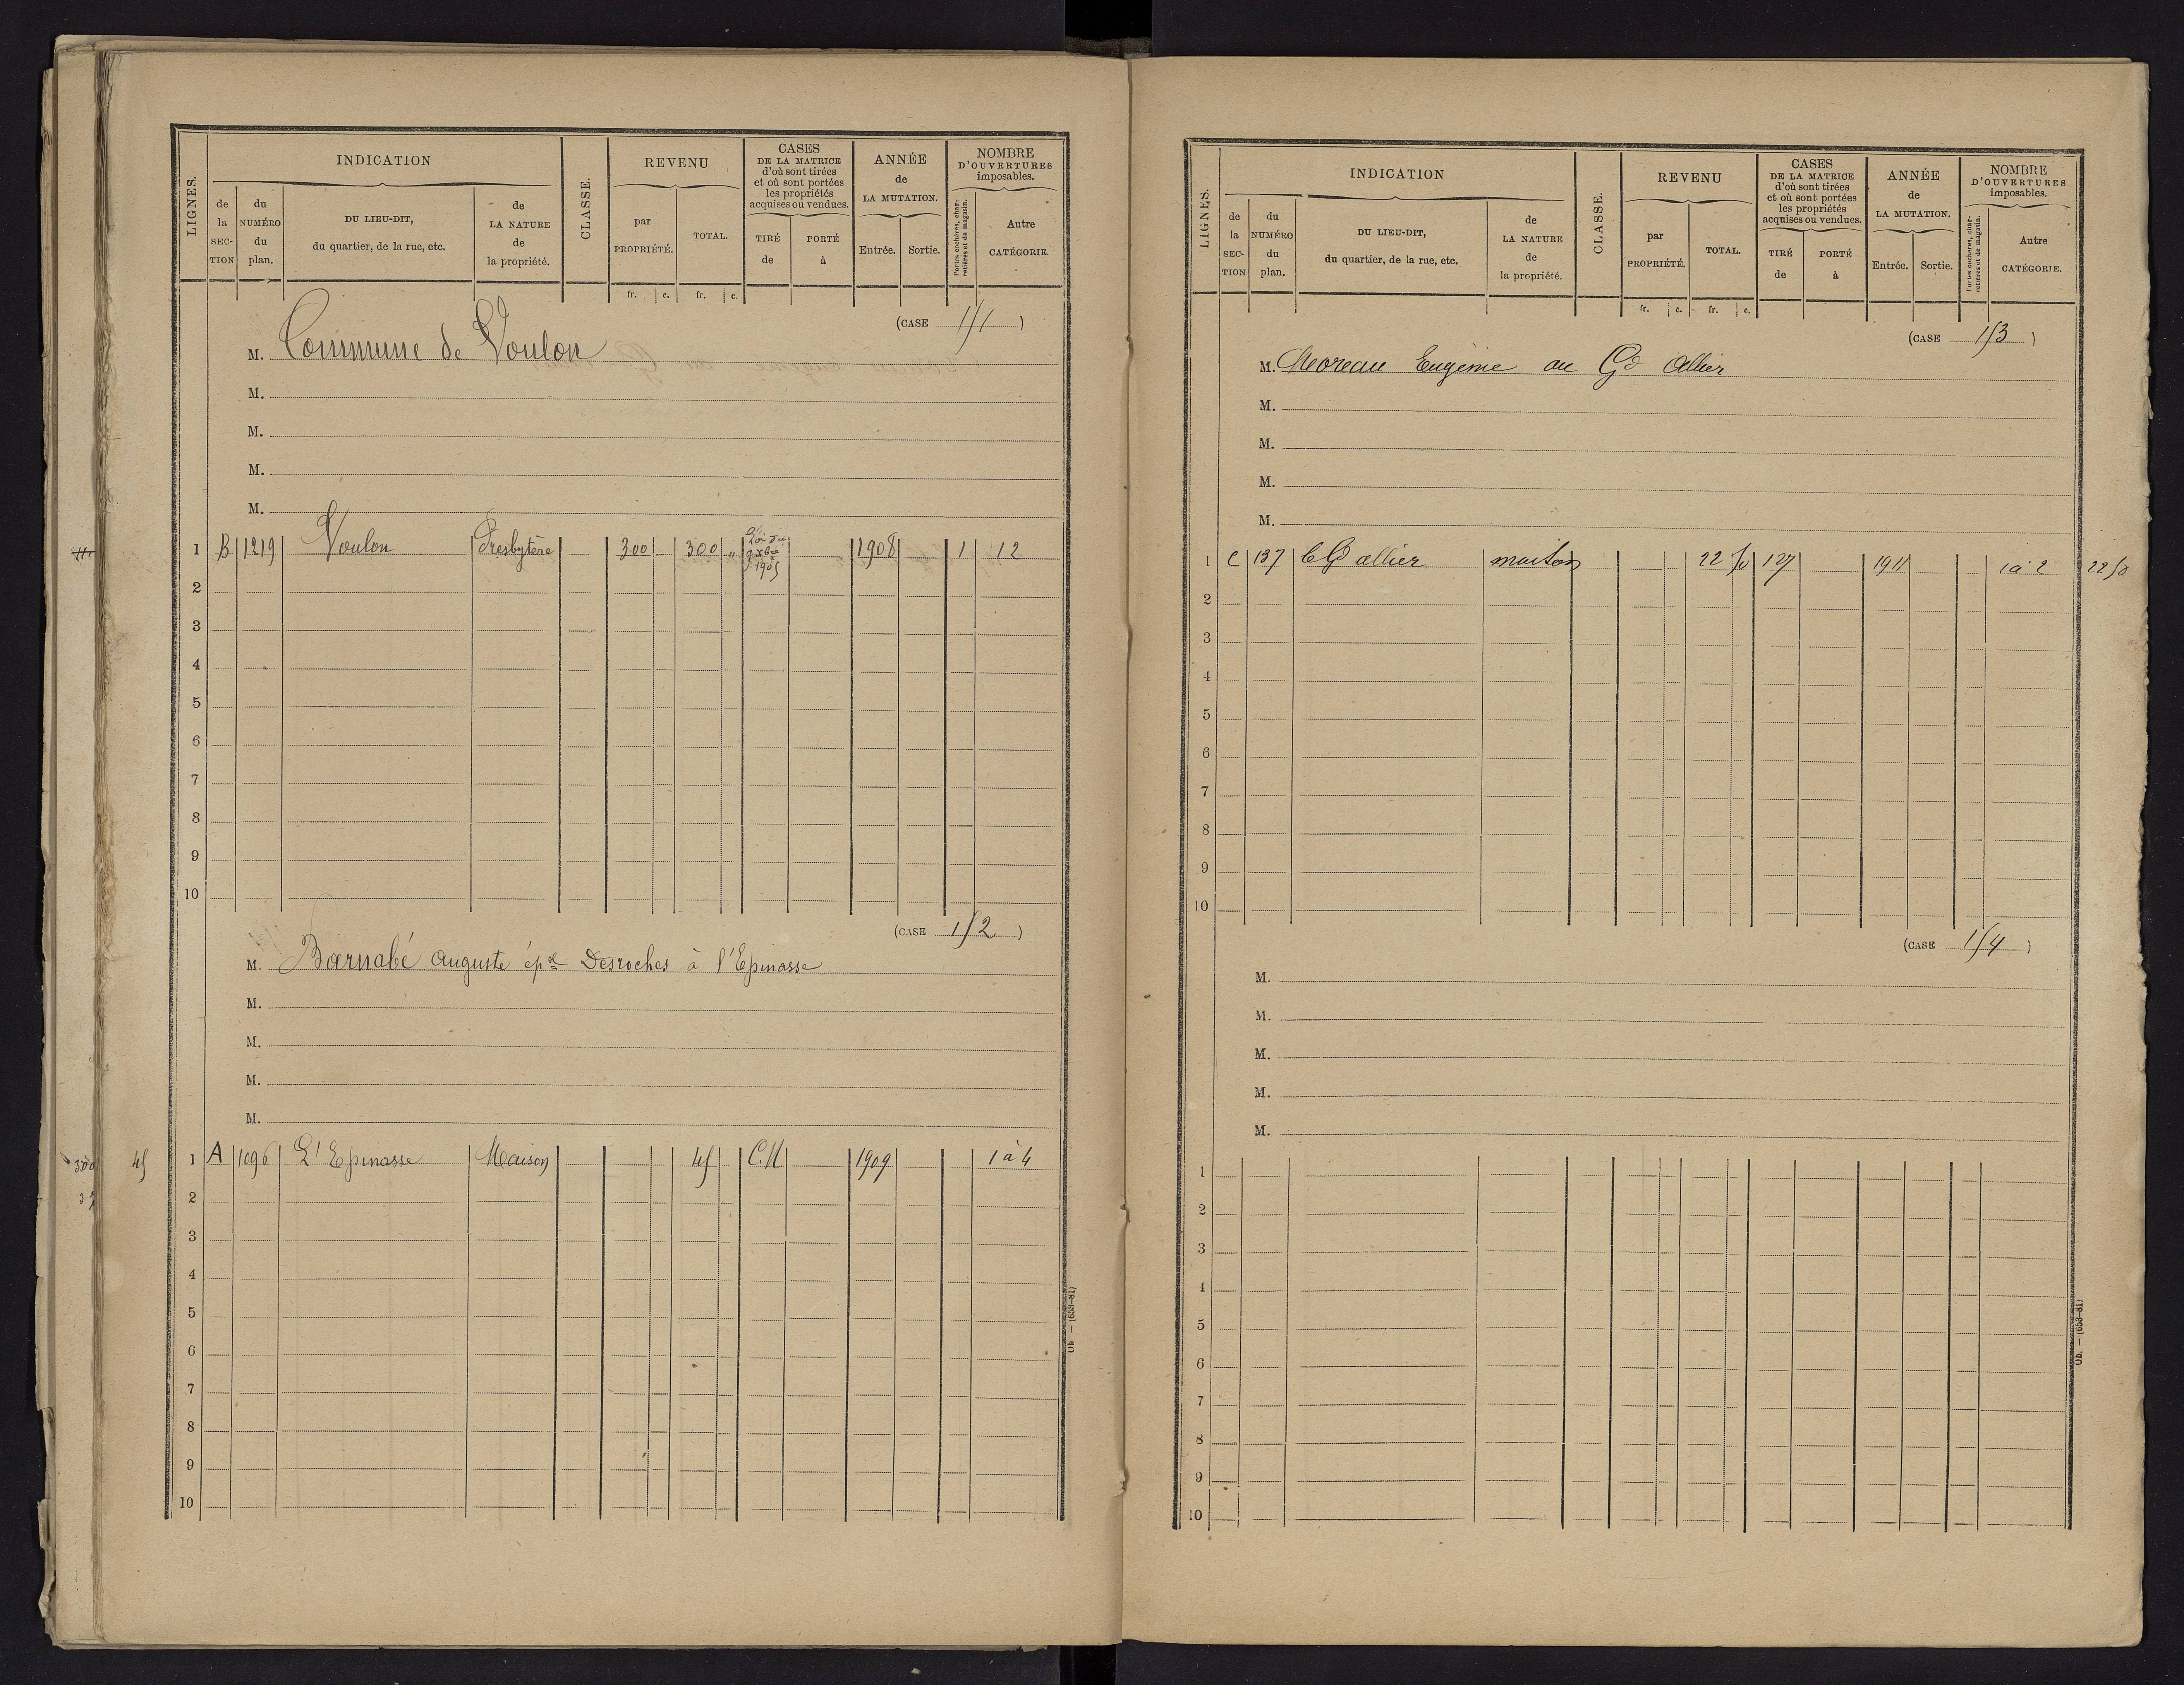 LIGNES.
INDICATION
de la SECTION
du NUMÉRO du plan.
DU LIEU-DIT, du quartier, de la rue, etc.
de LA NATURE de la propriété.
CLASSE.
REVENU
par PROPRIÉTÉ.
TOTAL.
fr. c. fr. c.
CASES DE LA MATRICE d'où sont tirées et où sont portées les propriétés acquises ou vendues.
TIRÉ de
PORTÉ à
ANNÉE de LA MUTATION.
Entrée. Sortie.
NOMBRE D'OUVERTURES imposables.
Portes cochères, charretières et de magasin.
Autre CATÉGORIE.
(CASE 151)
M. Commune de Voulon
M.
M.
M.
M.
1 B 1219 Voulon Presbytère 300 300 " Loi du 9 xbre 1905 1908 1 12
2
3
4
5
6
7
8
9
10
(CASE 152)
M. Barnabé Auguste épse Desroches à l'Epinasse
M.
M.
M.
M.
45
1 A 1096 L'Epinasse Maison 45 C.N 1909 1 à 4
2
3
4
5
6
7
8
9
10
Ob — (653-81)
LIGNES.
INDICATION
de la SECTION
du NUMÉRO du plan.
DU LIEU-DIT, du quartier, de la rue, etc.
de LA NATURE de la propriété.
CLASSE.
REVENU
par PROPRIÉTÉ.
TOTAL.
fr. c. fr. c.
CASES DE LA MATRICE d'où sont tirées et où sont portées les propriétés acquises ou vendues.
TIRÉ de
PORTÉ à
ANNÉE de LA MUTATION.
Entrée. Sortie.
NOMBRE D'OUVERTURES imposables.
Portes cochères, charretières et de magasin.
Autre CATÉGORIE.
(CASE 153)
M. Moreau Eugène au Gd Allier
M.
M.
M.
M.
1 C 137 Le Gd allier maison 22 50 127 1911 1 à 2 22 50
2
3
4
5
6
7
8
9
10
(CASE 154)
M.
M.
M.
M.
M.
1
2
3
4
5
6
7
8
9
10
Ob. — (653-81)